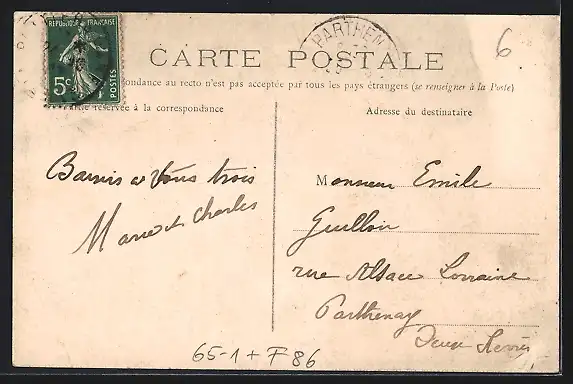 RÉPUBLIQUE FRANÇAISE
5c POSTES
PARTHEN
6
CARTE POSTALE
ondance au recto n'est pas acceptée par tous les pays étrangers (se renseigner à la Poste)
réservée à la correspondance
Adresse du destinataire
à Vous trois
Charles
Monsieur Emile
Guillon
rue Alsace Lorraine
Parthenay
Deux Sèvres
65-1+F86